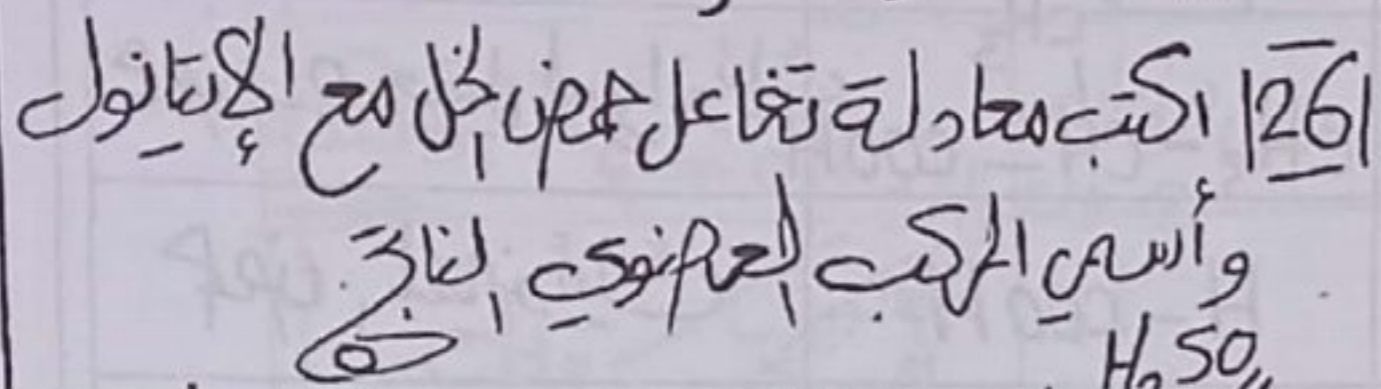 |26| اكتب معادلة تفاعل حمض الخل مع الإيتانول
وأسمي المركب العضوي الناتج
H₂SO₄